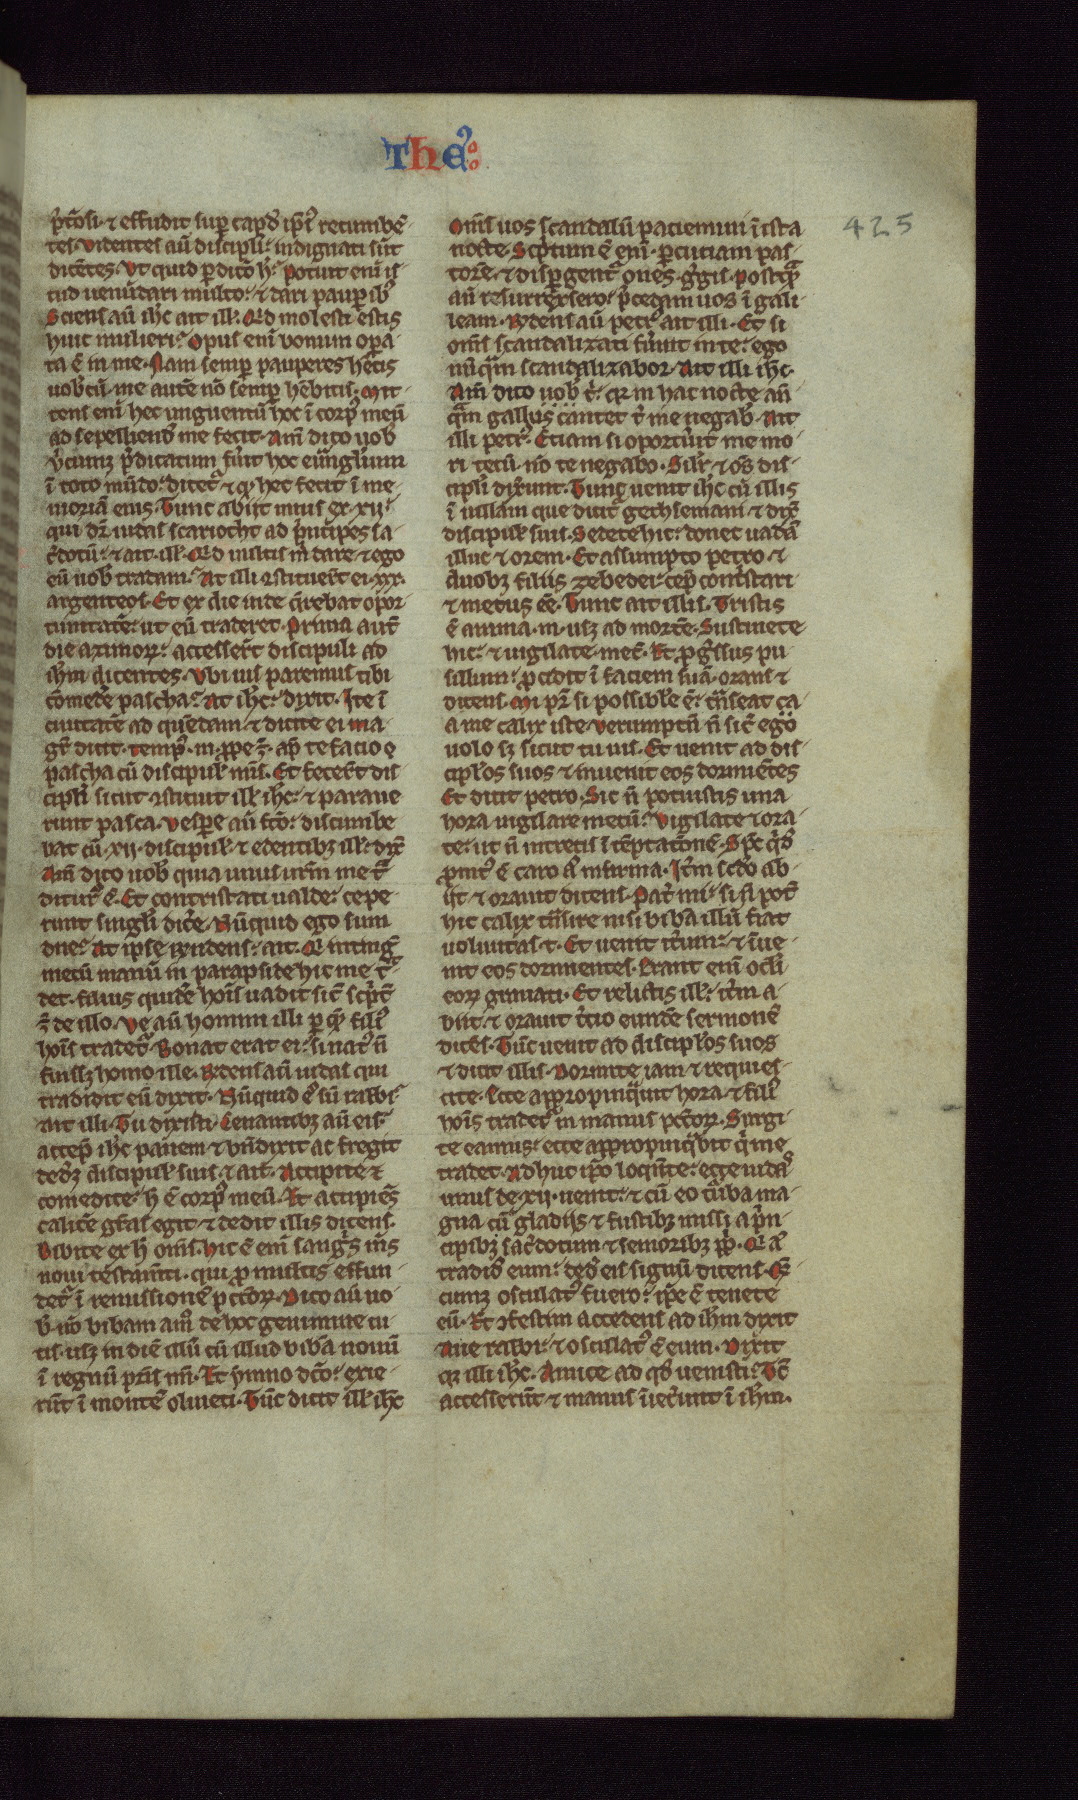 The᾿
425
p̄c̄osi · ⁊ effudit sup̲ capđ ip̄i᾿ recumbē-
tes · Videntes aū discipl̄i indignati sūt
dicētes · Vt quid p̲dicō h̄᾿ · potuit enī is-
tud uenūdari multo · ⁊ dari paup̲ib᾿
Sciens aū ih̄c ait ill̄ · Qd molesti estis
huic mulieri · Opus enī bonum op̲a-
ta ē in me · Nam semp̲ pauperes hētis
uobcū · me autē nō semp̲ hēbitis · Mit-
tens enī hec unguentū hoc ī corp᾿ meū
ad sepeliend᾿ me fecit · Am̄ dico uob̄
v̄cumq᾿ p̄dicatum fūit hoc euāgl̄ium
ī toto mūdo · dicet᾿ ⁊ qđ hec fecit ī me-
moriā eius · Tunc abiit unus ex · xii ·
qui dr̄ iudas scariocht ad p̄ncipes sa-
c̄dotū · ⁊ ait ill̄ · Qd uultis m̄ dare ⁊ ego
eū uob̄ tradam · At illi ꝯstituert̄ ei · xxx ·
argenteos · Et ex die inde q̄rebat opor-
tunitatē · ut eū traderet · Prima aut̄
die azimoꝝ · accesser̄t discipuli ad
ih̄m dicentes · Vbi uis paremus tibi
cōmedē pascha · At ih̄c · dixit · Ite ī
ciuitatē ad quēdam · ⁊ dicite ei ma-
gr̄ dicit · temp᾿ · m · ꝓpe ē · ap̄ te facio
pascha cū discipul᾿ mis̄ · Et fecer̄t dis-
cipl̄i sicut ꝯstituit ill̄ ih̄c · ⁊ paraue
runt pasca · Vesp̲e aū fcō · discumbe
bat cū · xii · discipul᾿ · ⁊ edentibꝫ ill̄ · dix̄
Am̄ dico uob̄ quia unus ur̄m me t̄-
ditur᾿ ē · Et contristati ualde · cepe
runt singl̄i dic̄e · Nūquid ego sum
dn̄e · At ipse rn̄dens · ait · Q̇ intingit
mecū manū in parapside hic me t̄-
det · filius quidē hōis uadit sic̄ sc̄pt̄
ē de illo · Ve aū homini illi p̲ q̄ fili᾿
hōis tradet᾿ · Bonū erat ei · si nat᾿ n̄
fuissꝫ homo ille · Rn̄dens aū iudas qui
tradidit eū dixit · Nūquid ē sū rabbi
ait illi · Tu dixisti · Cenantibꝫ aū eis
accep̄ ih̄c panem · ⁊ bn̄dixit ac fregit
deđꝫ discipul᾿ suis · ⁊ ait · Accipite ⁊
comedite · h̄ ē corp᾿ meū · Et accipiēs
calicē gr̄as egit · ⁊ dedit illis dicens
Bibite ex h̄ om̄s · Hic ē enī sang᾿s m̄s
noui testam̄ti · qui p̲ multis effun-
det᾿ ī remissionē pctōꝝ · Dico aū uo-
b̄ · nō bibam am̄o᾿ de hoc genimine ui-
tis · usꝫ in diē illū cū illud bibā nouū
ī regnū pr̄is mī · Et ymno dcō · exie-
rūt ī montē oliueti · Tūc dicit ill̄ ih̄c
Om̄s uos scandalū paciemini ī ista
nocte · Sc̄ptum ē enī · p̲cutiam pas-
torē · ⁊ disp̲gent᾿ oues g̲gis · postq̄
aū resurrexsero · p̄cedam uos ī gali-
leam · Rn̄dens aū petr᾿ ait illi · Et si
om̄s scandalizati fūint in te · ego
nūq̄m scandalizabor · Ait illi ih̄c ·
Am̄ dico uob̄ t᾿ · qr in hac nocte an̄
q̄m gallus cantet t᾿ me negab᾿ · Ait
illi petr᾿ · Etiam si oportūit me mo-
ri tecū · nō te negabo · Silr̄ ⁊ ōs dis-
cipl̄i dixerunt · Tunc uenit ih̄c cū illis
ī uillam que dicit᾿ gethsemani · ⁊ dix̄
discipul᾿ suis · Sedete hic · donec uadā
illuc ⁊ orem · Et assumpto petro · ⁊
duobꝫ filiis zebedei · cep̄ cont̄stari
⁊ mestus eē · Tunc ait illis · Tristis
ē anima · m · usꝫ ad mortē · Sustinete
hic · ⁊ uigilate · mec̄ · Et p̲g̲ssus pu-
sillum · p̲cidit ī faciem suā · orans ⁊
dicens · Mi pr̄ si possibile ē · t̄nseat
a me calix iste · Verumptn̄ n̄ sic̄ ego
uolo sꝫ sicut tu uis · Et uenit ad dis-
cipl̄os suos ⁊ inuenit eos dormiētes
Et dicit petro · Sic n̄ potuistis una
hora uigilare mecū · Vigilate ⁊ ora-
te · ut n̄ intretis ī tēptac̄onē · Sp̄c q̄d̄
p̲mt᾿ ē caro a᾿ infirma · It̄m sc̄do ab-
iit ⁊ orauit dicens · Pat̄ mi᾿ si n̄ pot̄
hic calix t̄nsire nisi bibā illū fiat
voluntas · t · Et uenit it̄um · ⁊ īue-
nit eos dormientes · Erant enī ocl̄i
eoꝝ grauati · Et relictis ill̄ · it̄m a-
biit · ⁊ orauit t̄cio eundē sermonē
dicēs · Tūc uenit ad discipl̄os suos
⁊ dicit illis · Dormite iam ⁊ requies-
cite · Ecce appropinq̄uit hora · ⁊ fili᾿
hōis tradet᾿ in manus pccōꝝ · Surgi-
te eamus · ecce appropinq̄bit q᾿ me
tradet · Adhuc ip̄o loq̄nte · ecce iudas᾿
unus de · xii · uenit · ⁊ cū eo t᾿ba ma-
gna cū gladiis ⁊ fustibꝫ missi a p̄n-
cipibꝫ sac̄dotum · ⁊ senioribꝫ pp̄ł · Q᾿ a᾿
tradid᾿ eum · ded᾿ eis signū dicens · Q̄
cumꝫ osculat᾿ fuero · ip̄e ē tenete
eū · Et ꝯfestim accedens ad ih̄m dixit
Aue rabbi · ⁊ osculat᾿ ē eum · Dixit
qꝫ illi ih̄c · Amice ad qđ uenisti · Tc̄
accesserūt · ⁊ manus iniec̄runt ī ih̄m ·